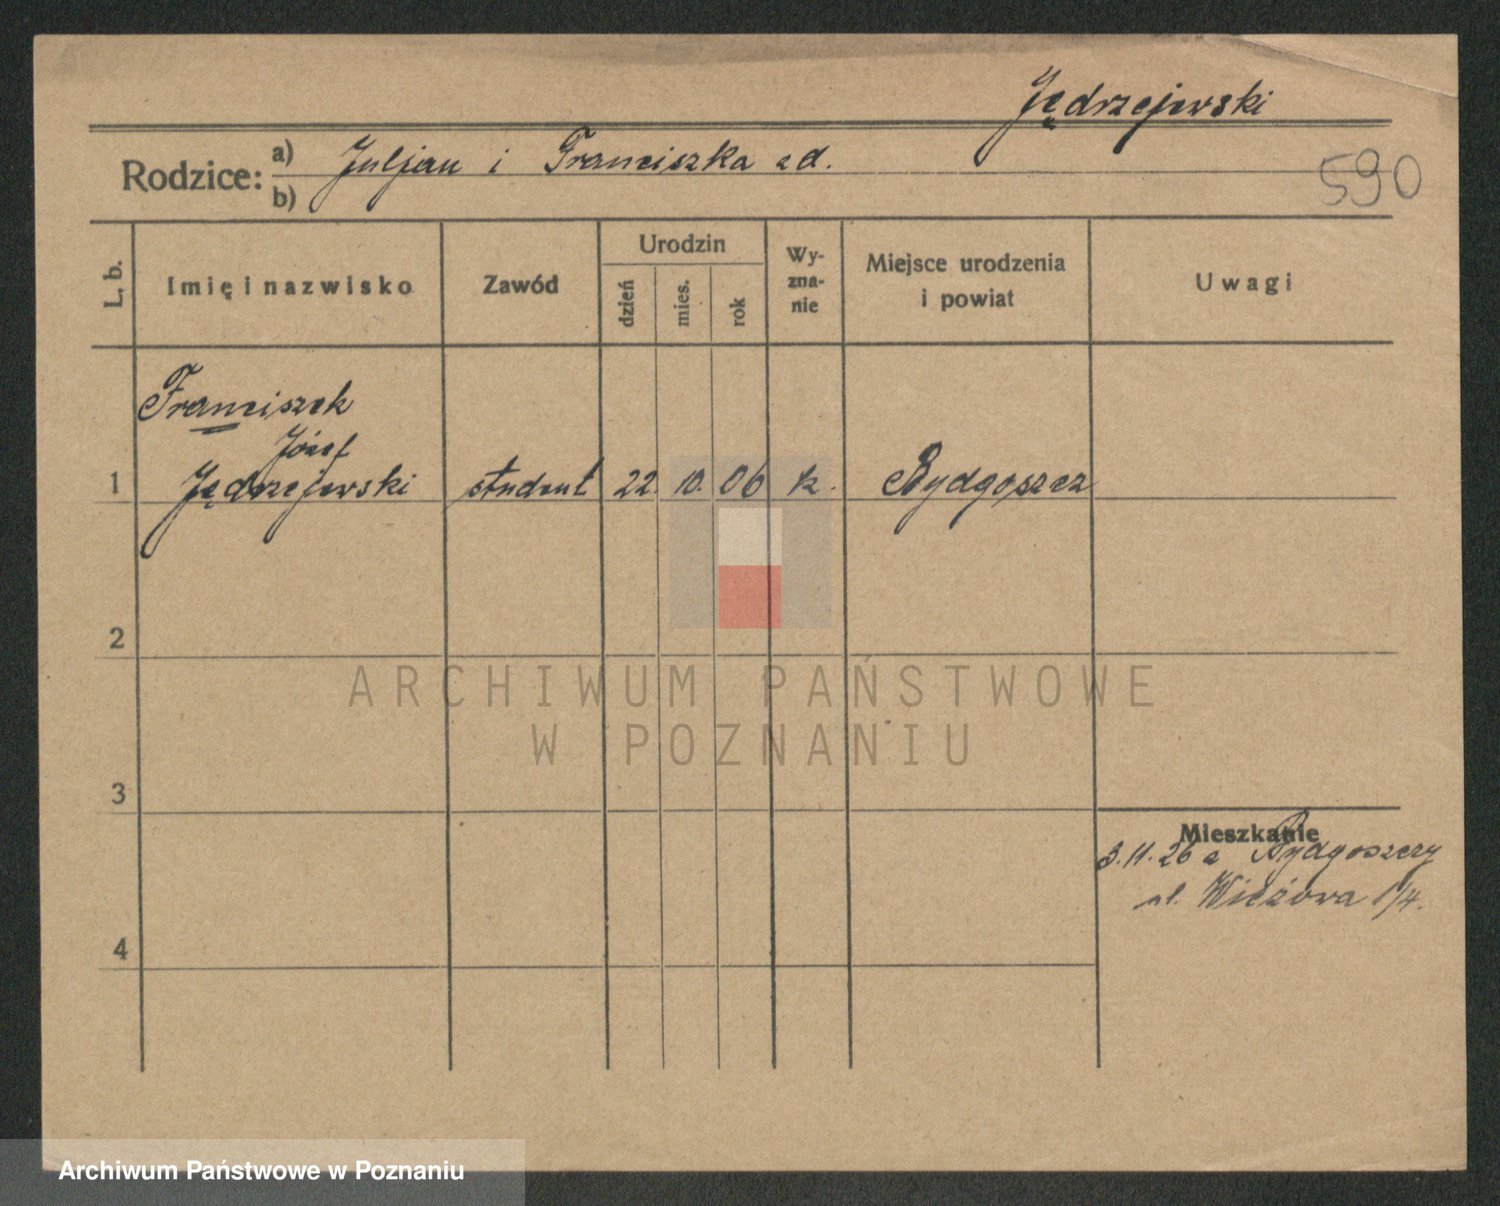 Jędrzejewski
Rodzice: a) Juljan i Franciszka zd.
b)
590
L. b. Imię i nazwisko Zawód Urodzin dzień mies. rok Wy-zna-nie Miejsce urodzenia i powiat Uwagi
Franciszek
Józef
1 Jędrzejewski student 22. 10. 06 k. Bydgoszcz
2
ARCHIWUM PAŃSTWOWE
W POZNANIU
3
Mieszkanie
3.11.26 z Bydgoszczy
ul. Wieżowa 1/4.
4
Archiwum Państwowe w Poznaniu